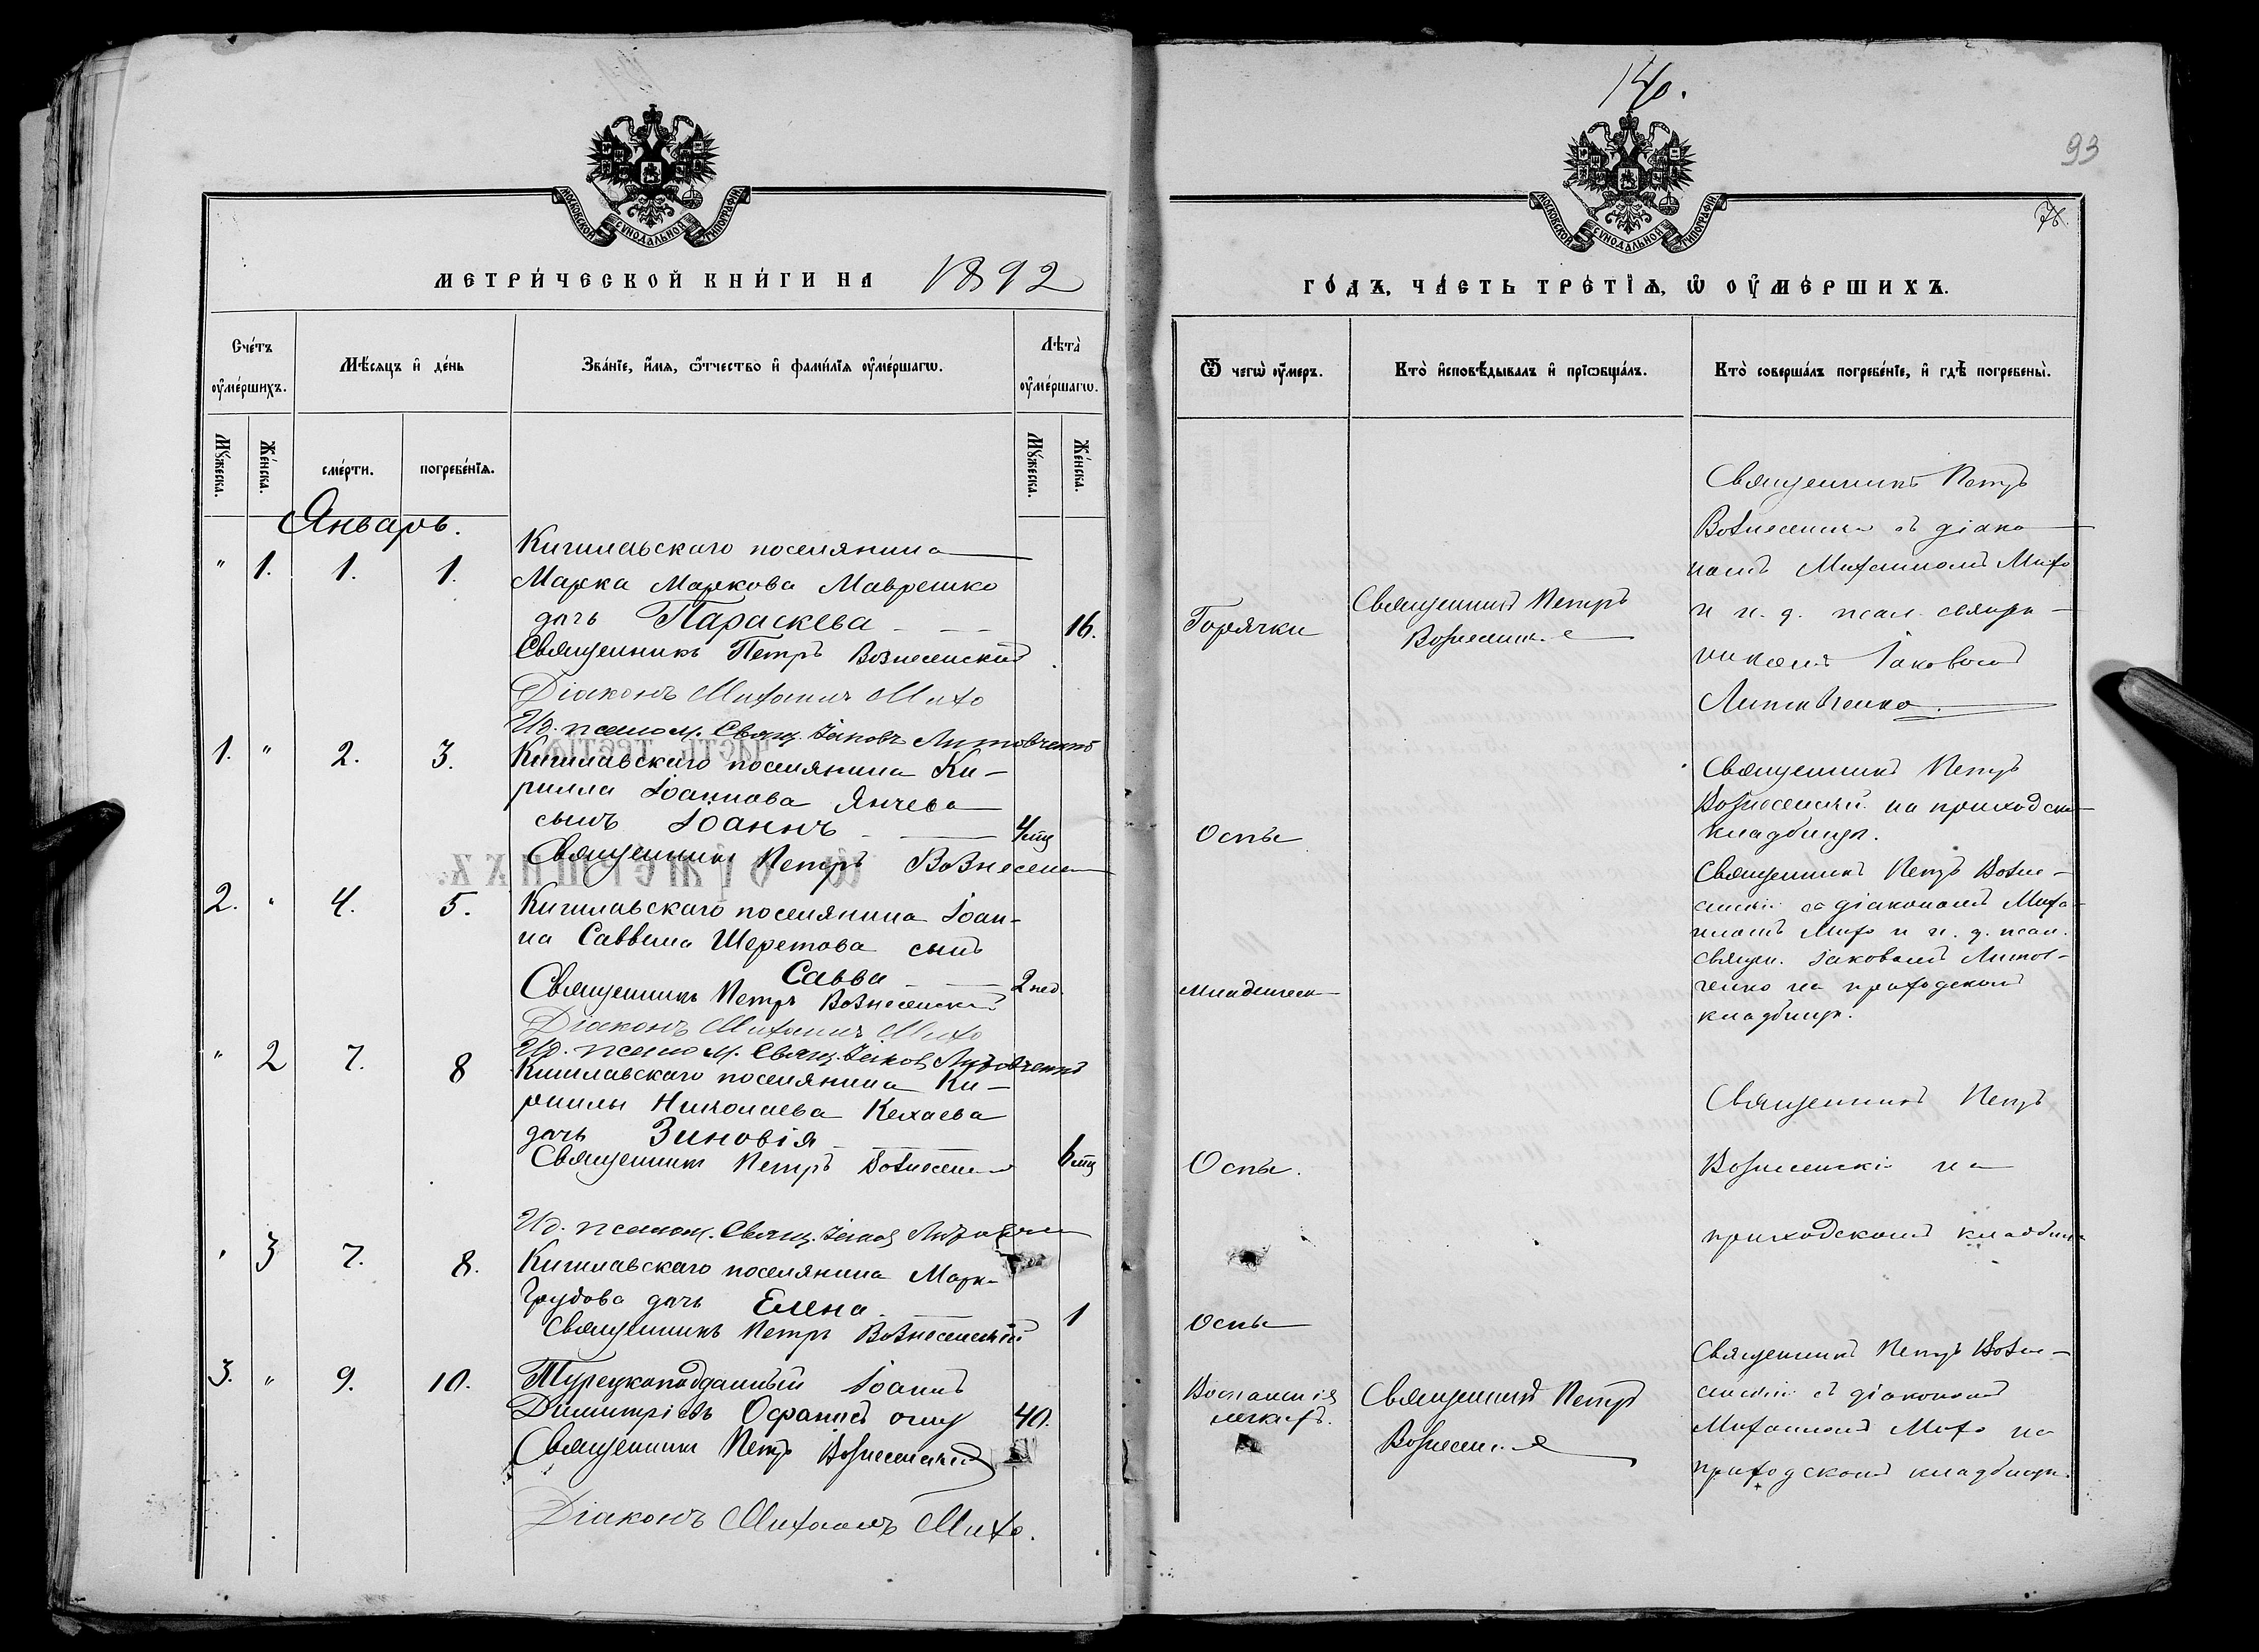 140.
93
МОСКОВСКОЙ СУНОДАЛЬНОЙ ТИПОГРАФІИ
МОСКОВСКОЙ СУНОДАЛЬНОЙ ТИПОГРАФІИ
МЕТРИ́ЧЕСКОЙ КНИ́ГИ НА 1892
ГО́ДЪ, ЧА́СТЬ ТРЕ́ТІѦ, Ѡ ОУ҆МЕ́РШИХЪ.
Сче́тъ оу҆ме́ршихъ.
Мѣ́сяцъ и҆ де́нь
Зва́нїе, и҆́мя, ѻ҆́тчество и҆ фами́лїя оу҆ме́ршагѡ.
Лѣта̀ оу҆ме́ршагѡ.
Ѿ чегѡ̀ оу҆́меръ.
Кто̀ и҆сповѣ́дывалъ и҆ прїѡбща́лъ.
Кто̀ соверша́лъ погребе́нїе, и҆ гдѣ̀ погребены̀.
Му́жеска.
Же́нска.
сме́рти.
погребе́нїѧ.
Му́жеска.
Же́нска.
Январь.
" 1. 1. 1.
Кишлавскаго поселянина
Марка Маркова Маврешко
дочь Параскева 16.
Священникъ Петръ Вознесенскій
Діаконъ Михаилъ Михо
Ид. псалом. Свящ. Іаковъ Литовченко
Горячки
Священникъ Петръ
Священникъ Петръ
Вознесенскій съ діако
номъ Михаиломъ Михо
и и. д. псал. священ-
никомъ Іаковомъ
Литовченко.
1. " 2. 3.
Кишлавскаго поселянина Ки-
рилла Іоаннова Янчева
сынъ Іоаннъ 4 мц
Священникъ Петръ Вознесенск
Оспы
Священникъ Петръ
Вознесенскій на приходском
кладбищѣ.
2. " 4. 5.
Кишлавскаго поселянина Іоан-
на Саввина Шеретова сынъ
Савва 2 нед.
Священникъ Петръ Вознесенскій
Діаконъ Михаилъ Михо
Ид. псалом. Свящ. Іаковъ Литовченко
младенческ
Священникъ Петръ Возне-
сенскій со діакономъ Миха-
иломъ Михо и и. д. псал.
священ. Іаковомъ Литов-
ченко на приходскомъ
кладбищѣ.
" 2 7. 8
Кишлавскаго поселянина Ки-
риллы Николаева Кехаева
дочь Зиновія 6 мц
Священникъ Петръ Вознесенск
Ид. псалом. Свящ. Іаков
Оспы.
Священникъ Петръ
Вознесенскій на
приходскомъ кладбищ
" 3 7. 8.
Кишлавскаго поселянина Марк
Грудова дочь Елена 1
Священникъ Петръ Вознесенскій
Оспы
3. " 9. 10.
Турецкоподданный Іоаннъ
Димитріевъ 40.
Священникъ Петръ Вознесенскій
Діаконъ Михаилъ Михо.
Воспаленія
легкихъ.
Священникъ Петръ
Священникъ Петръ Возне-
сенскій съ діакономъ
Михаиломъ Михо на
приходскомъ кладбищѣ.